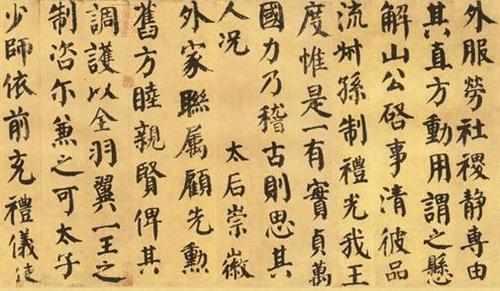 外服勞社稷靜專由
其直方動用謂之懸
解山公啓事清彼品
流叔孫制禮光我王
度惟是一有實貞萬
國力乃稽古則思其
人况 太后崇徽
外家聯属顧先勳
舊方睦親賢俾其
調護以全羽翼一王之
制咨尔兼之可太子
少師依前充禮儀使